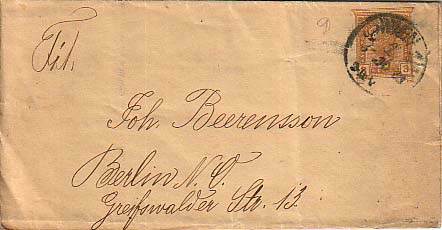 Fil.
Joh. Beerensson
Berlin N.O.
Greifswalder Str. 13.